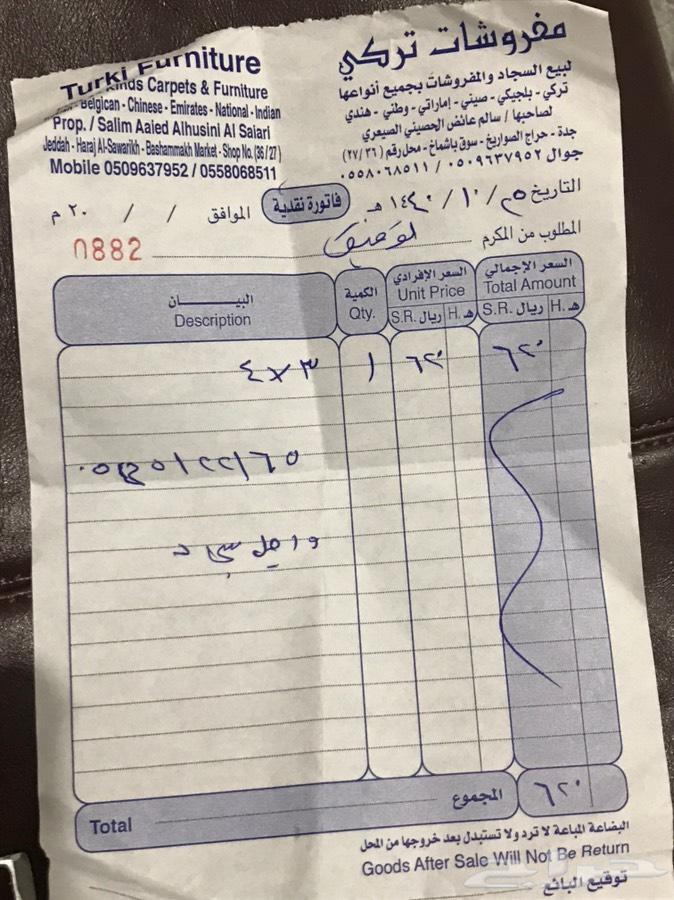 Turki Furniture
مفروشات تركي
Kinds Carpets & Furniture
لبيع السجاد والمفروشات بجميع أنواعها
Belgican - Chinese - Emirates - National - Indian
تركي - بلجيكي - صيني - إماراتي - وطني - هندي
Prop. / Salim Aaied Alhusini Al Saiari
لصاحبها / سالم عائض الحصيني الصيعري
Jeddah - Haraj Al-Sawarikh - Bashammakh Market - Shop No. (36 / 27)
جدة - حراج الصواريخ - سوق باشماخ - محل رقم (٣٦ / ٢٧)
Mobile 0509637952 / 0558068511
جوال ٠٥٠٩٦٣٧٩٥٢ / ٠٥٥٨٠٦٨٥١١
التاريخ ٢٥ / ١٠ / ١٤٤٠ هـ
فاتورة نقدية
الموافق / / ٢٠ م
المطلوب من المكرم
0882
البيـــــــان
Description
الكمية
Qty.
السعر الإفرادي
Unit Price
S.R. ريال H. هـ
السعر الإجمالي
Total Amount
S.R. ريال H. هـ
٣ × ٤
١
٦٢٠
٦٢٠
Total
المجموع
٦٢٠
البضاعة المباعة لا ترد ولا تستبدل بعد خروجها من المحل
Goods After Sale Will Not Be Return
توقيع البائع
حراج